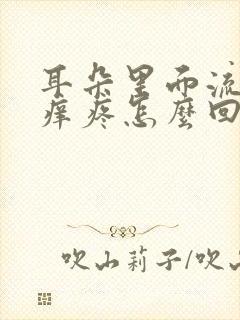 耳朵里而流
痒疼怎麼回
吹山莉子/吹山